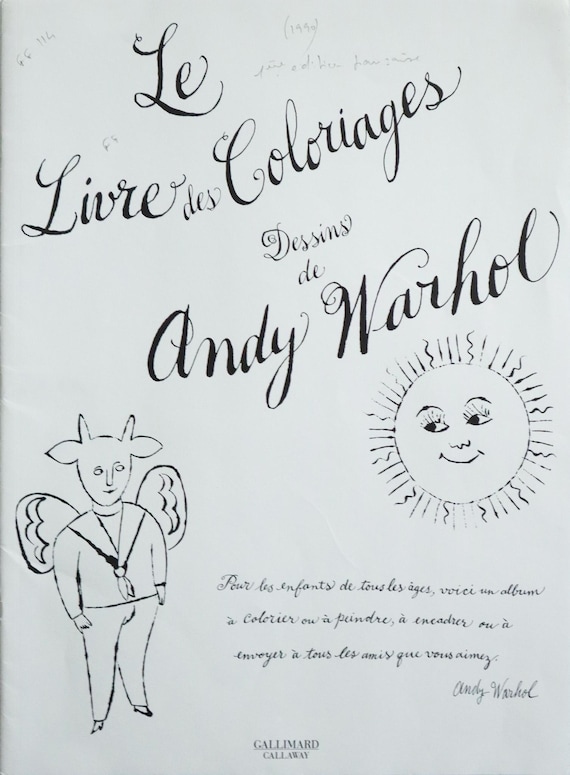 (1990)
1ère edition française
Le
Livre des Coloriages
Dessins
de
Andy Warhol
Pour les enfants de tous les âges, voici un album
à colorier ou à peindre, à encadrer ou à
envoyer à tous les amis que vous aimez.
Andy Warhol
GALLIMARD
CALLAWAY